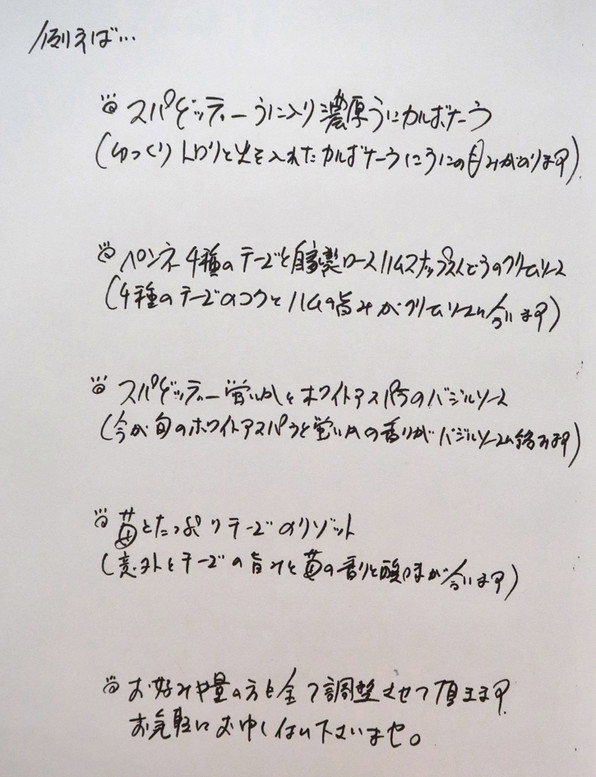 例えば…
スパゲッティー うに入り 濃厚うにカルボナーラ
(ゆっくりトロリと火を入れたカルボナーラにうにの旨みがのります)
ペンネ 4種のチーズと自家製ロースハムスナップえんどうのクリームソース
(4種のチーズのコクとハムの旨みがクリームソースに合います)
スパゲッティー 蛍いかとホワイトアスパラのバジルソース
(今が旬のホワイトアスパラと蛍いかの香りがバジルソースに絡みます)
苺とたっぷりチーズのリゾット
(意外とチーズの旨みと苺の香りと酸味が合います)
お好みや量の方も全て調整させて頂きます
お気軽にお申し付け下さいませ。